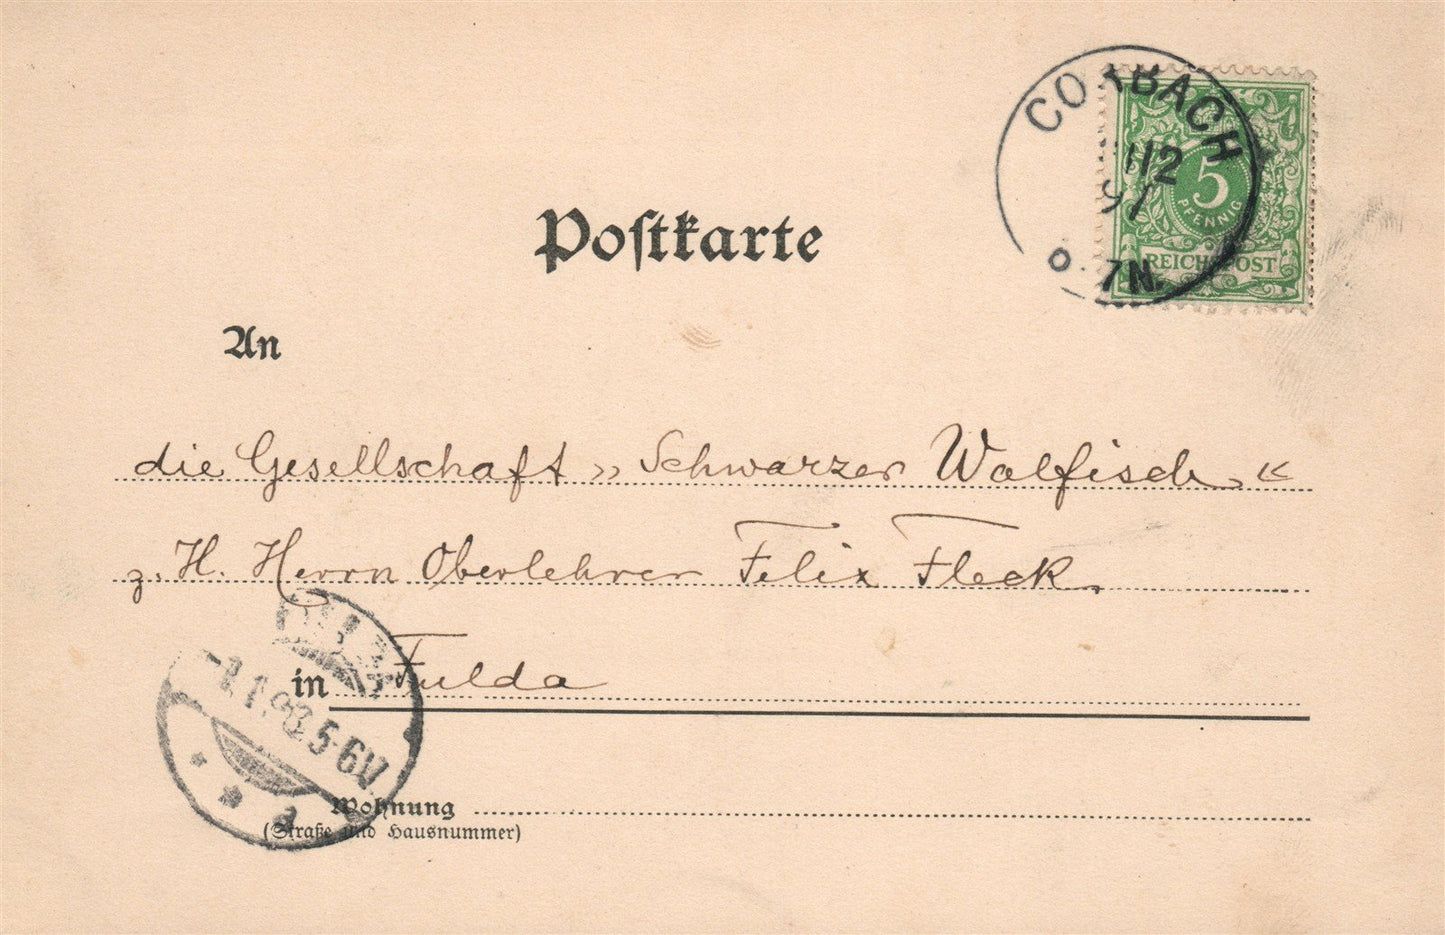 CORBACH
5
PFENNIG
REICHSPOST
7N.
Postkarte
An
die Gesellschaft » Schwarzer Walfisch «
z. H. Herrn Oberlehrer Felix Fleck,
in Fulda
1.1.98.5-6V
a
Wohnung
(Straße und Hausnummer)